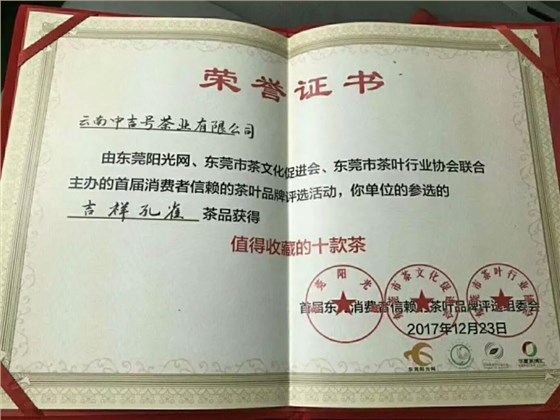 荣誉证书
云南中吉号茶业有限公司
由东莞阳光网、东莞市茶文化促进会、东莞市茶叶行业协会联合
主办的首届消费者信赖的茶叶品牌评选活动，你单位的参选的
吉祥孔雀 茶品获得
值得收藏的十款茶
首届东莞消费者信赖的茶叶品牌评选组委会
2017年12月23日